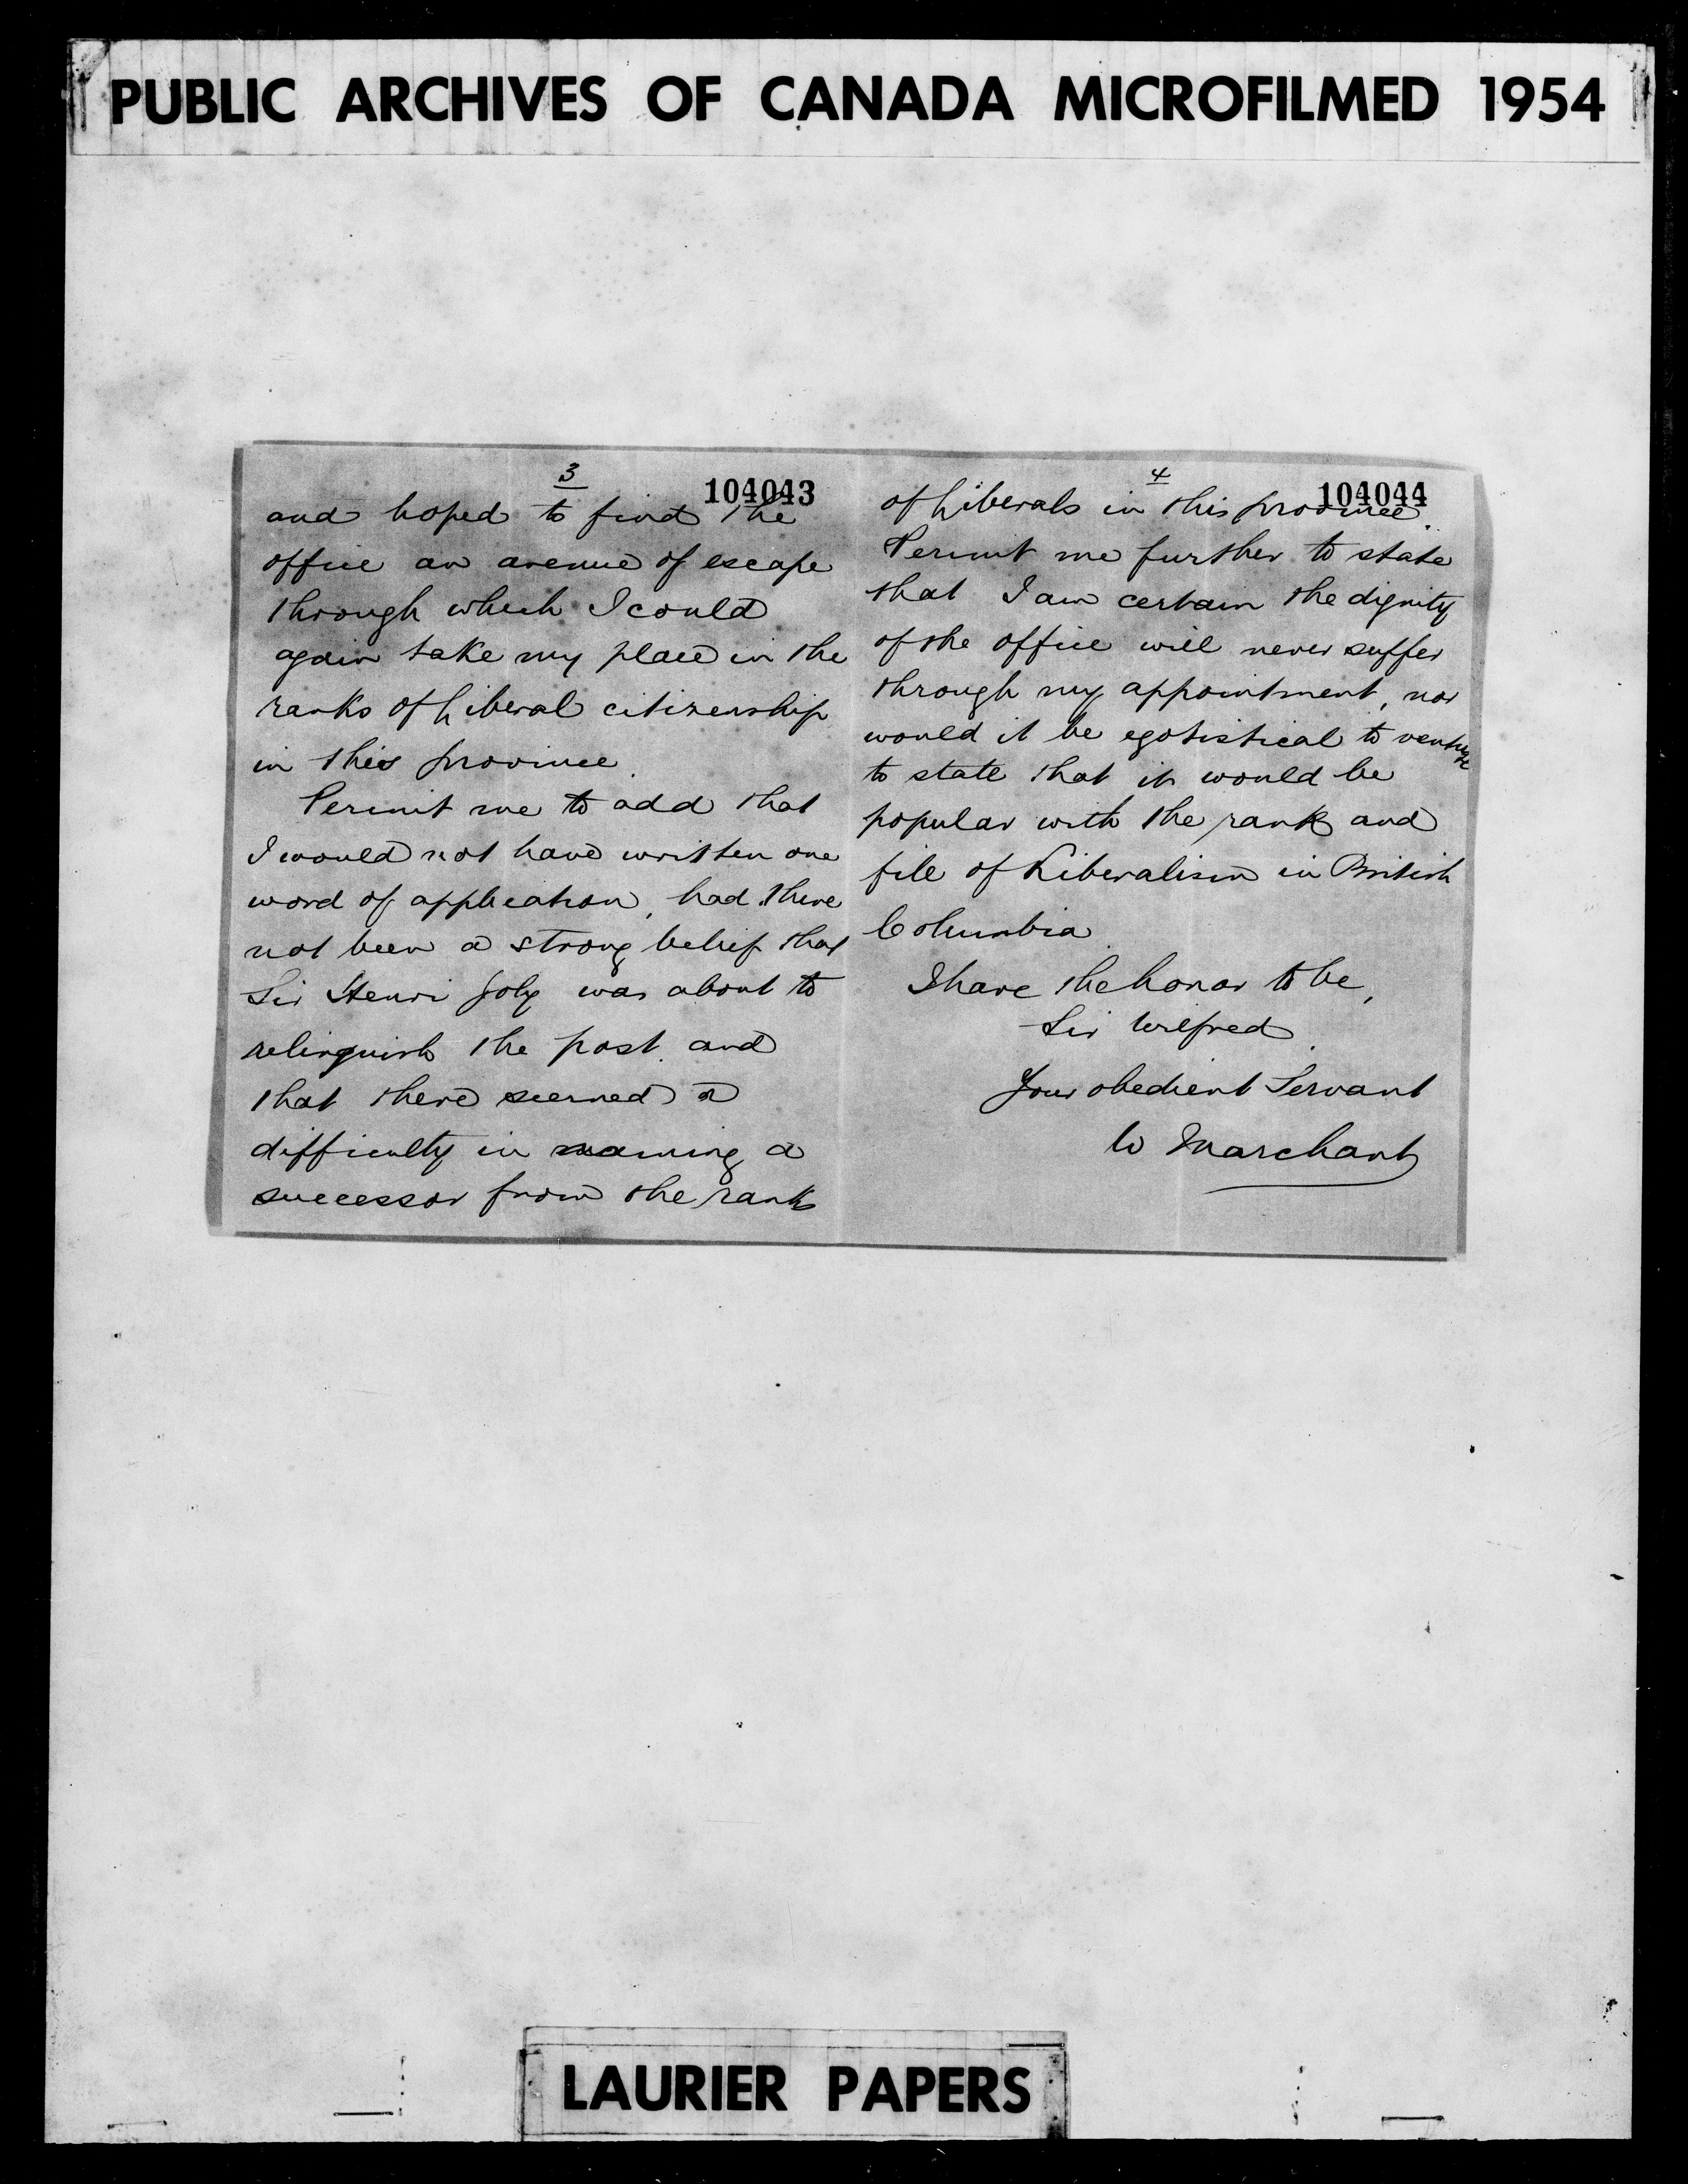 PUBLIC ARCHIVES OF CANADA MICROFILMED 1954
3
104043
and hoped to find the
office an avenue of escape
through which I could
again take my place in the
ranks of Liberal citizenship
in this province.
Permit me to add that
I would not have written one
word of application, had there
not been a strong belief that
Sir Henri Joly was about to
relinquish the post and
that there seemed a
difficulty in naming a
successor from the ranks
4
104044
of Liberals in this province.
Permit me further to state
that I am certain the dignity
of the office will never suffer
through my appointment, nor
would it be egotistical to venture
to state that it would be
popular with the rank and
file of Liberalism in British
Columbia.
I have the honor to be,
Sir Wilfred.
Your obedient Servant
W Marchant
LAURIER PAPERS